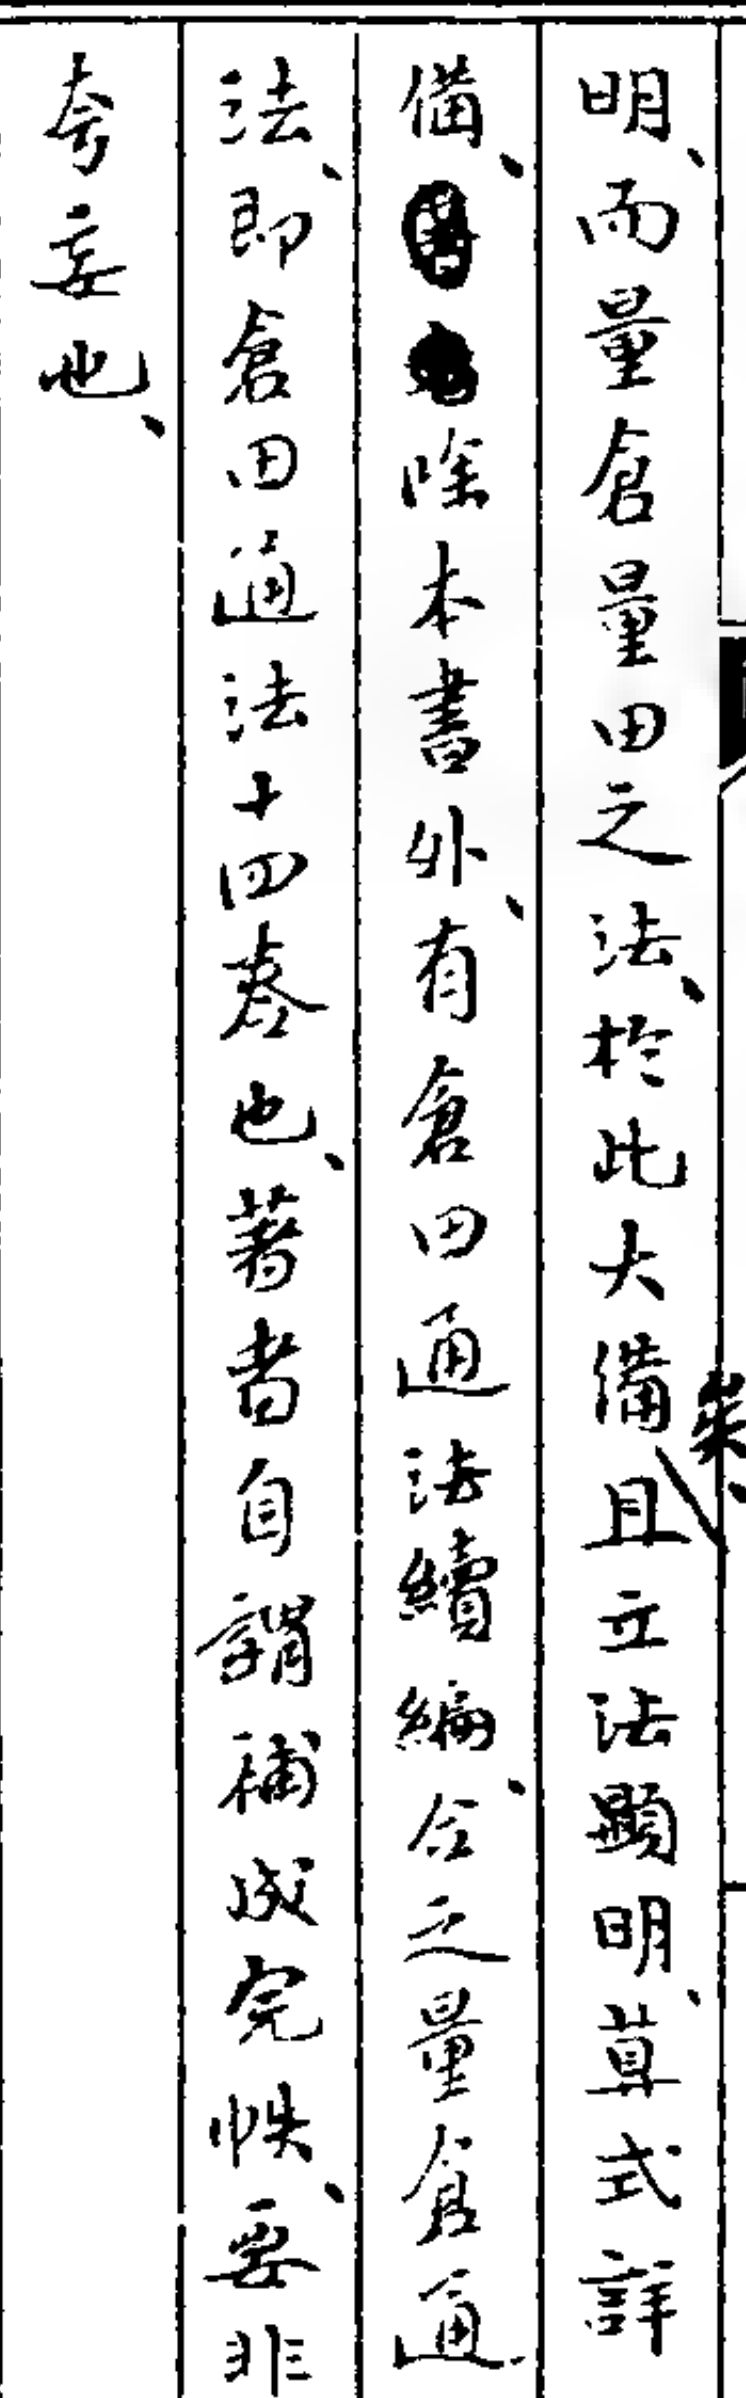 明、而量倉量田之法、於此大備矣、且立法顯明、算式詳
備、除本書外、有倉田通法續編、合之量倉通
法、即倉田通法十四卷也、著者自謂補成完帙、要非
夸妄也、